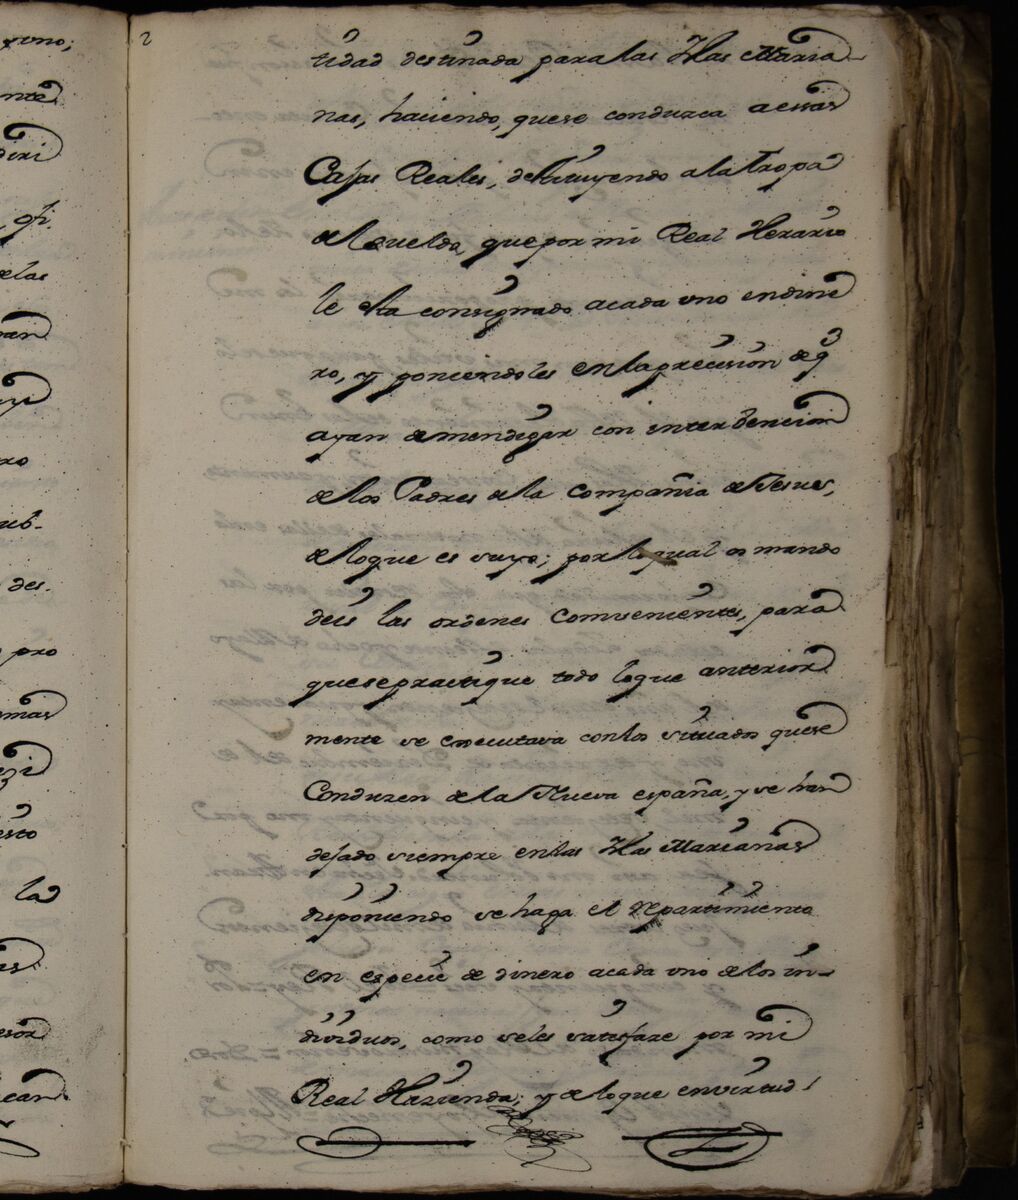 2
tidad destinada para las Yslas Maria
nas, haciendo, que se conduzca a essas
Cajas Reales, destituyendo a la tropa
del sueldo, que por mi Real Herario
le esta consignado a cada uno en dine
ro, y poniendoles en la precision de q
ayan de mendigar con interbencion
de los Padres de la Compañia de Jesus,
de lo que es suyo; por lo qual os mando
deis las ordenes combenientes, para
que se practique todo lo que anterior
mente se executava con los situados que se
Conduzen de la Nueva españa, y se han
dejado siempre en las Yslas Marianas
disponiendo se haga el Repartimiento
en especie de dinero a cada uno de los in-
dividuos, como se les satisface por mi
Real Hazienda; y de lo que en virtud